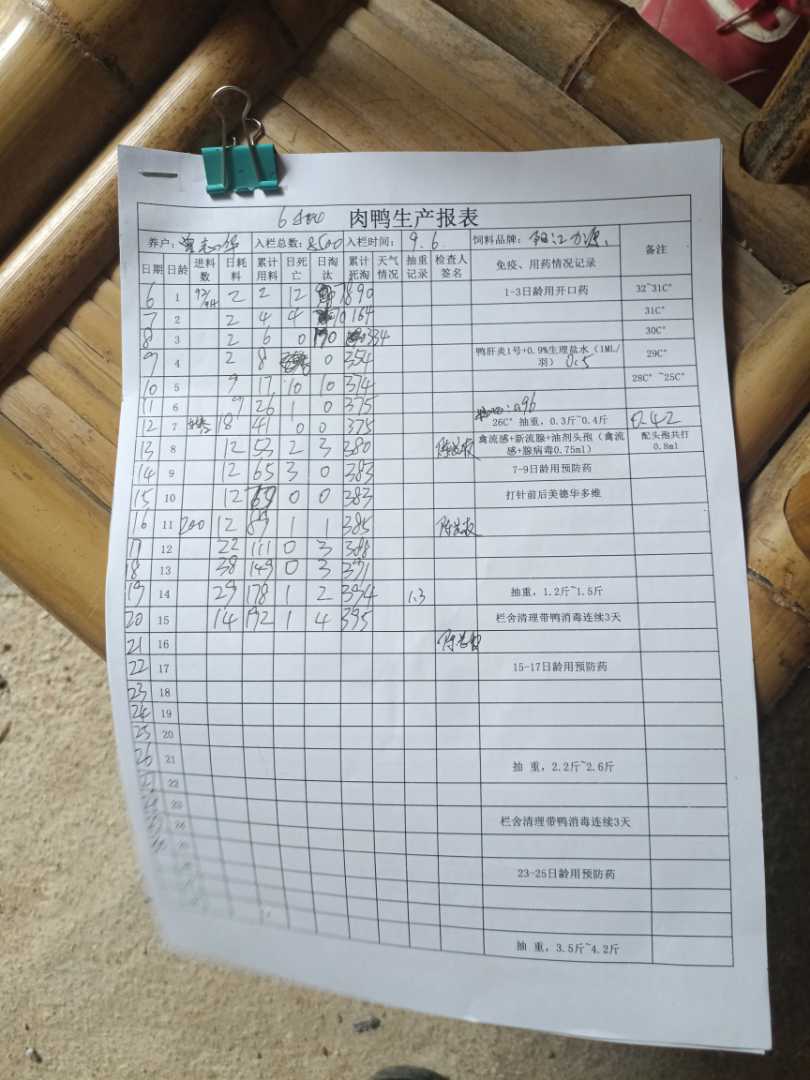 肉鸭生产报表
养户: 入栏总数: 8500 入栏时间: 9.6 饲料品牌: 备注
日期 日龄 进料数 日耗料 累计用料 日死亡 日淘汰 累计死淘 天气情况 抽重记录 检查人签名 免疫、用药情况记录
6 1 2 2 12 1-3日龄用开口药 32~31C°
7 2 2 4 4 164 31C°
8 3 2 6 0 30C°
9 4 2 8 0 354 鸭肝炎1号+0.9%生理盐水（1ML/羽） 0.5 29C°
10 5 9 17 10 10 374 28C° ~25C°
11 6 9 26 1 0 375
12 7 18 41 0 0 375 26C° 抽重，0.3斤~0.4斤 0.42
13 8 12 53 2 3 380 禽流感+新流腺+油剂头孢（禽流感+腺病毒0.75ml） 配头孢共打0.8ml
14 9 12 65 3 0 383 7-9日龄用预防药
15 10 12 0 0 383 打针前后美德华多维
16 11 200 12 89 1 1 385
17 12 22 111 0 3 388
18 13 38 149 0 3 391
19 14 29 178 1 2 394 1.3 抽重，1.2斤~1.5斤
20 15 14 192 1 4 395 栏舍清理带鸭消毒连续3天
21 16
22 17 15-17日龄用预防药
23 18
24 19
25 20
26 21 抽 重，2.2斤~2.6斤
22
23 栏舍清理带鸭消毒连续3天
23-25日龄用预防药
抽 重，3.5斤~4.2斤